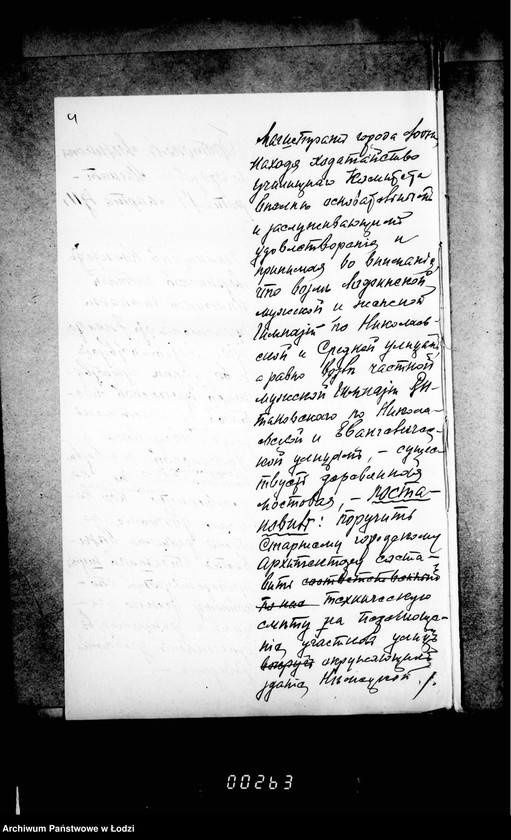 4
Магистратъ города Лодзи,
находя ходатайство
училищнаго Комитета
вполнѣ основательнымъ
и заслуживающимъ
удовлетворенія и
принимая во вниманіе,
что возлѣ Лодзинской
мужской и женской
Гимназій по Николаев-
ской и Средней улицамъ,
а равно возлѣ частной
мужской Гимназіи
по Никола-
евской и Евангеличес-
кой улицамъ, – сущес-
твуетъ деревянная
мостовая, – поста-
новилъ: поручить
Старшему городскому
Архитектору соста-
вить
техническую
смѣту на
участковъ улицъ
окружающихъ
зданіе Нѣмецкой
00263
Archiwum Państwowe w Łodzi